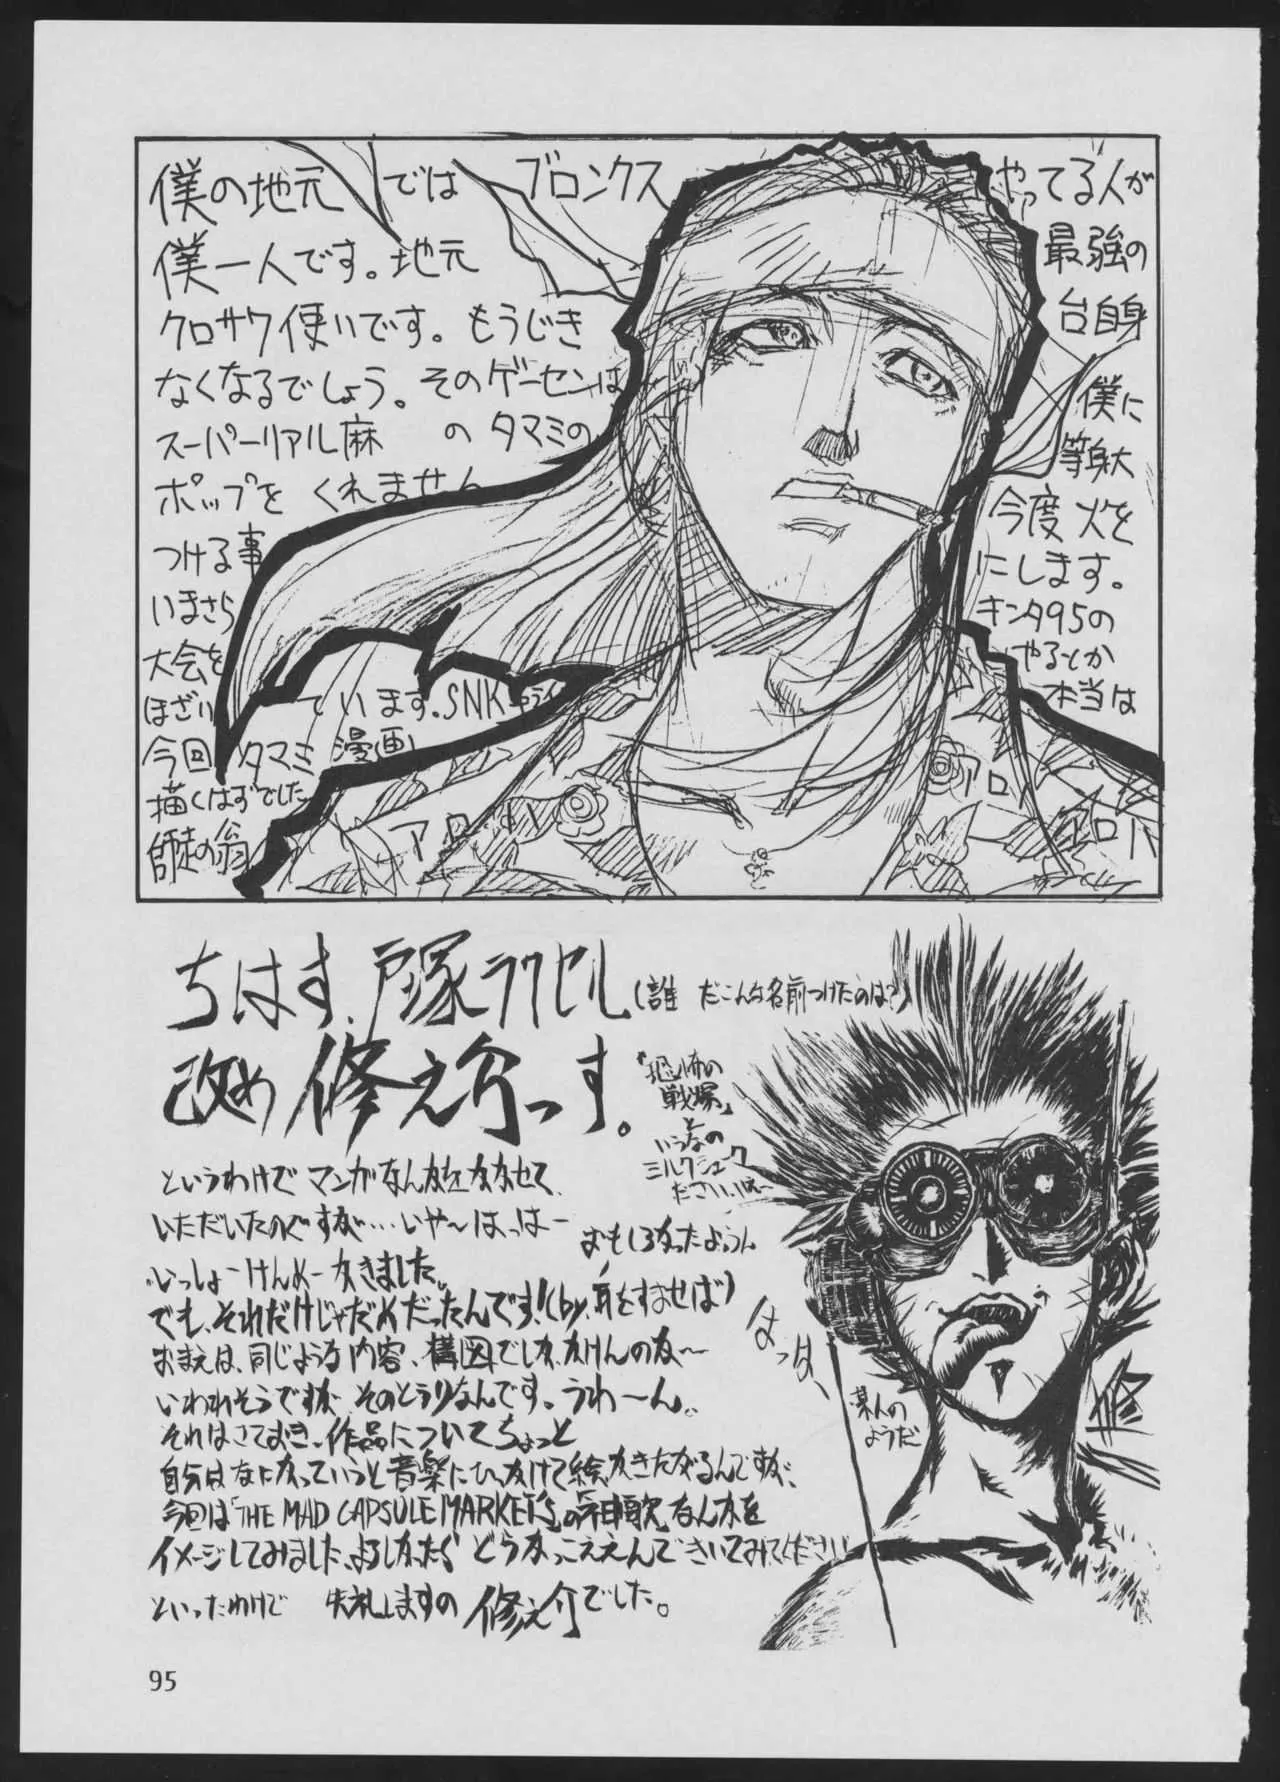 僕の地元では ブロンクス やってる人が
僕一人です。地元 最強の
クロサワ使いです。もうじき 台自身
なくなるでしょう。そのゲーセンは 僕に
スーパーリアル麻 のタマミの 等身大
ポップを くれません 今度 火を
つける事 にします。
いまさら キンタ95の
大会を やるとか
ほざい ています。SNK 本当は
今回 タマミ 漫画
描くはずでした
師徒の翁
アロハ
アロ
アロハ
ちはす、戸塚ラクセル(誰だこんな名前つけたのは?)
改め 修之介っす。
『恐怖の
戦場』と
いうなの
ミルクシェーク
ださい、ほ~
というわけで マンガなんかをかかせて、
いただいたのですが…いやーはっはー
おもしろかったよううん
いっしょーけんめーかきました。
でも、それだけじゃだめだったんです!(by.耳をすませば)
おまえは、同じような内容、構図でしか、かけんのかー
いわれそうですが そのとうりなんです。うわーん。
それはさておき、作品についてちょっと
自分はなにかっていうと音楽にひっかけて絵、かきたがるんですが、
今回は「THE MAD CAPSULE MARKET'S」の「神歌」なんかを
イメージしてみました、よろしかったら どうかっこええんできいてみてください
といったわけで 失礼しますの 修之介でした。
はっは、
某人の
ようだ
修
95